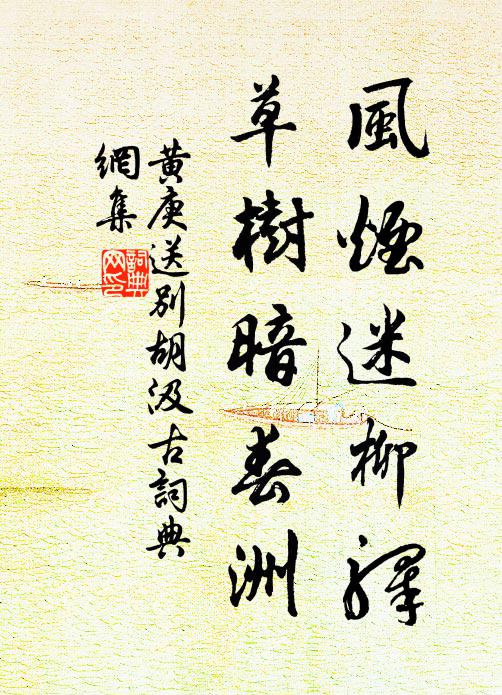 風煙迷柳驛
草樹暗春洲
黄庚送别胡汲古詞典
網集
詞典网印